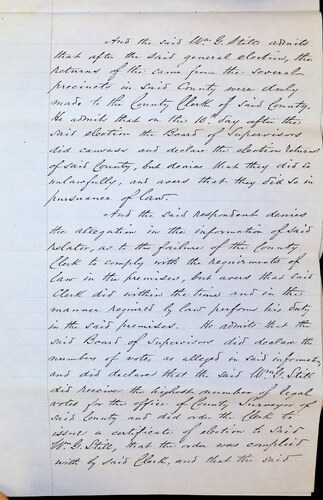 And the said Wm G. Still admits
that after the said general election, the
returns of the same from the several
precincts in said County were duly
made to the County Clerk of said County.
He admits that on the 10th day after the
said election the Board of Supervisors
did canvass and declare the election returns
of said County, but denies that they did so
unlawfully, and avers that they did so in
pursuance of law.
And the said respondent denies
the allegation in the information of said
relator, as to the failure of the County
Clerk to comply with the requirments of
law in the premises, but avers that said
Clerk did within the time and in the
manner required by law perform his duty
in the said premises. He admits that the
said Board of Supervisors did declare the
number of votes as alleged in said information
and did declare that the said Wm G. Still
did receive the highest number of legal
votes for the office of County Surveyor of
said County and did order the Clerk to
issue a certificate of election to said
Wm G. Still, that the order was complied
with by said Clerk, and that the said